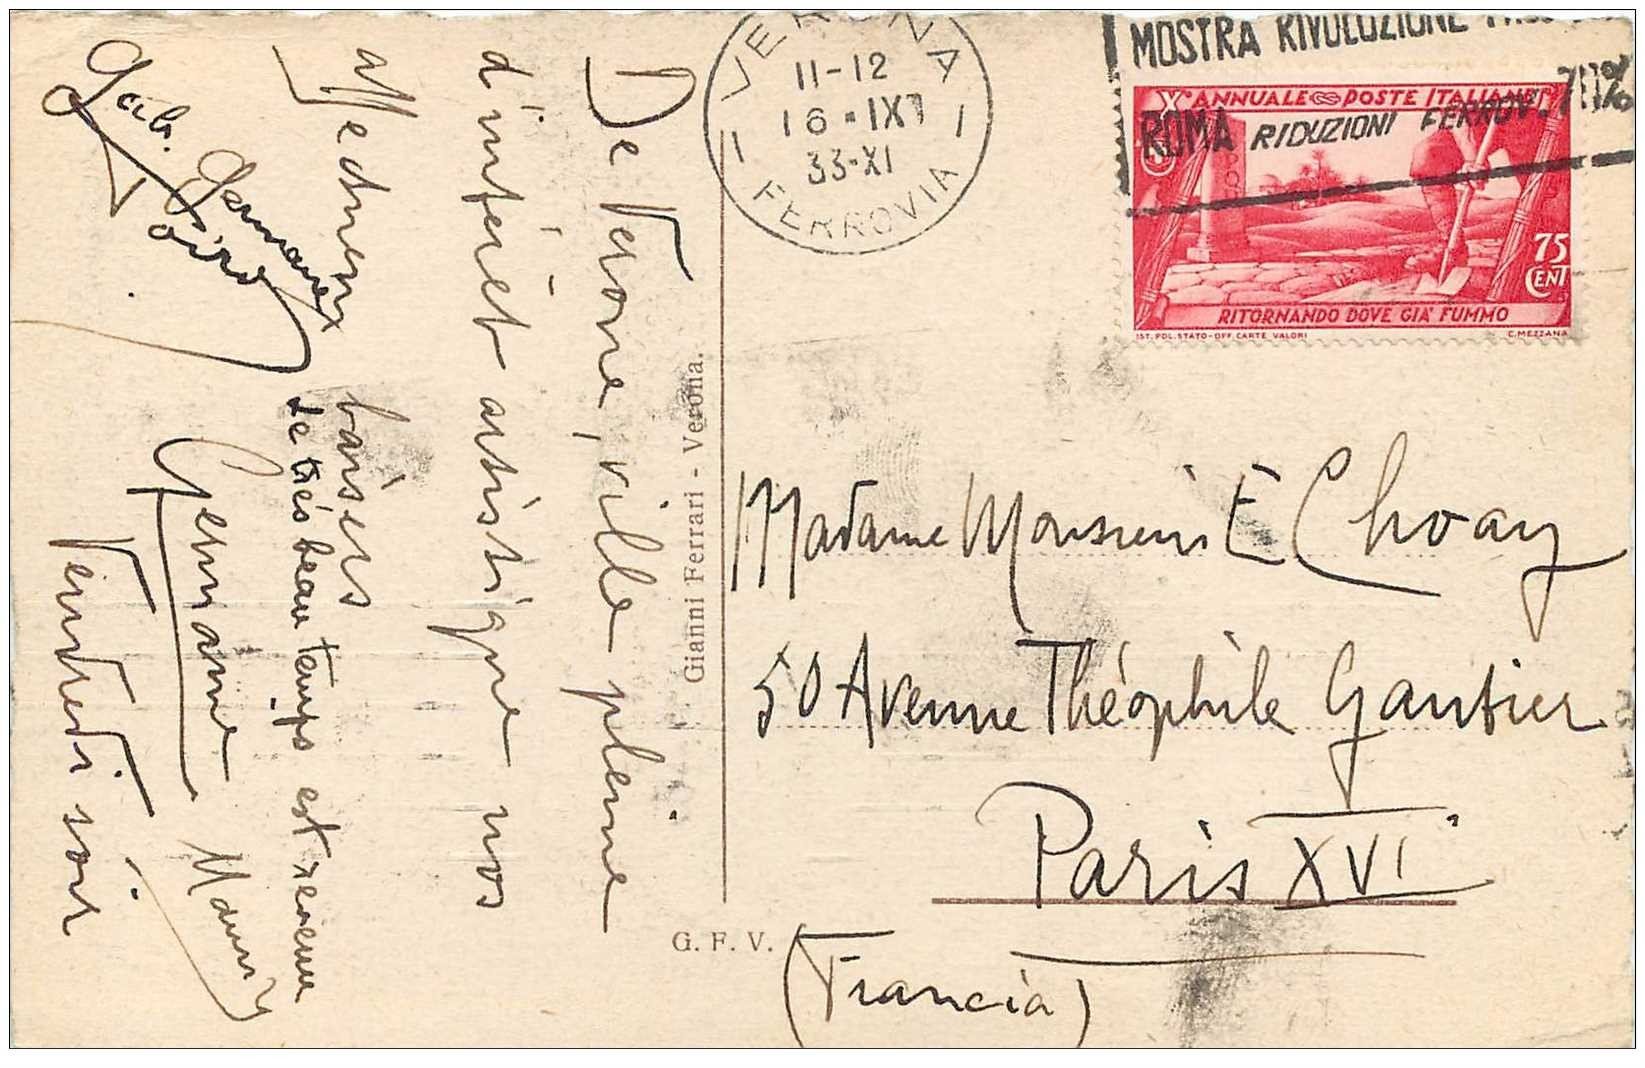 VERONA
11-12
16-IX
33-XI
FERROVIA
MOSTRA RIVOLUZIONE
ROMA RIDUZIONI FERROV. 70%
X° ANNUALE POSTE ITALIANE
75
CENT
RITORNANDO DOVE GIA' FUMMO
IST. POL. STATO-OFF. CARTE VALORI
C. MEZZANA
De Verone, ville pleine
d'intérêt artistique nos
affectueux baisers
le très beau temps est revenu
Germaine
Vendredi soir
Gianni Ferrari - Verona.
G. F. V.
Madame Monsieur E Choay
50 Avenue Théophile Gautier
Paris XVI
(Francia)